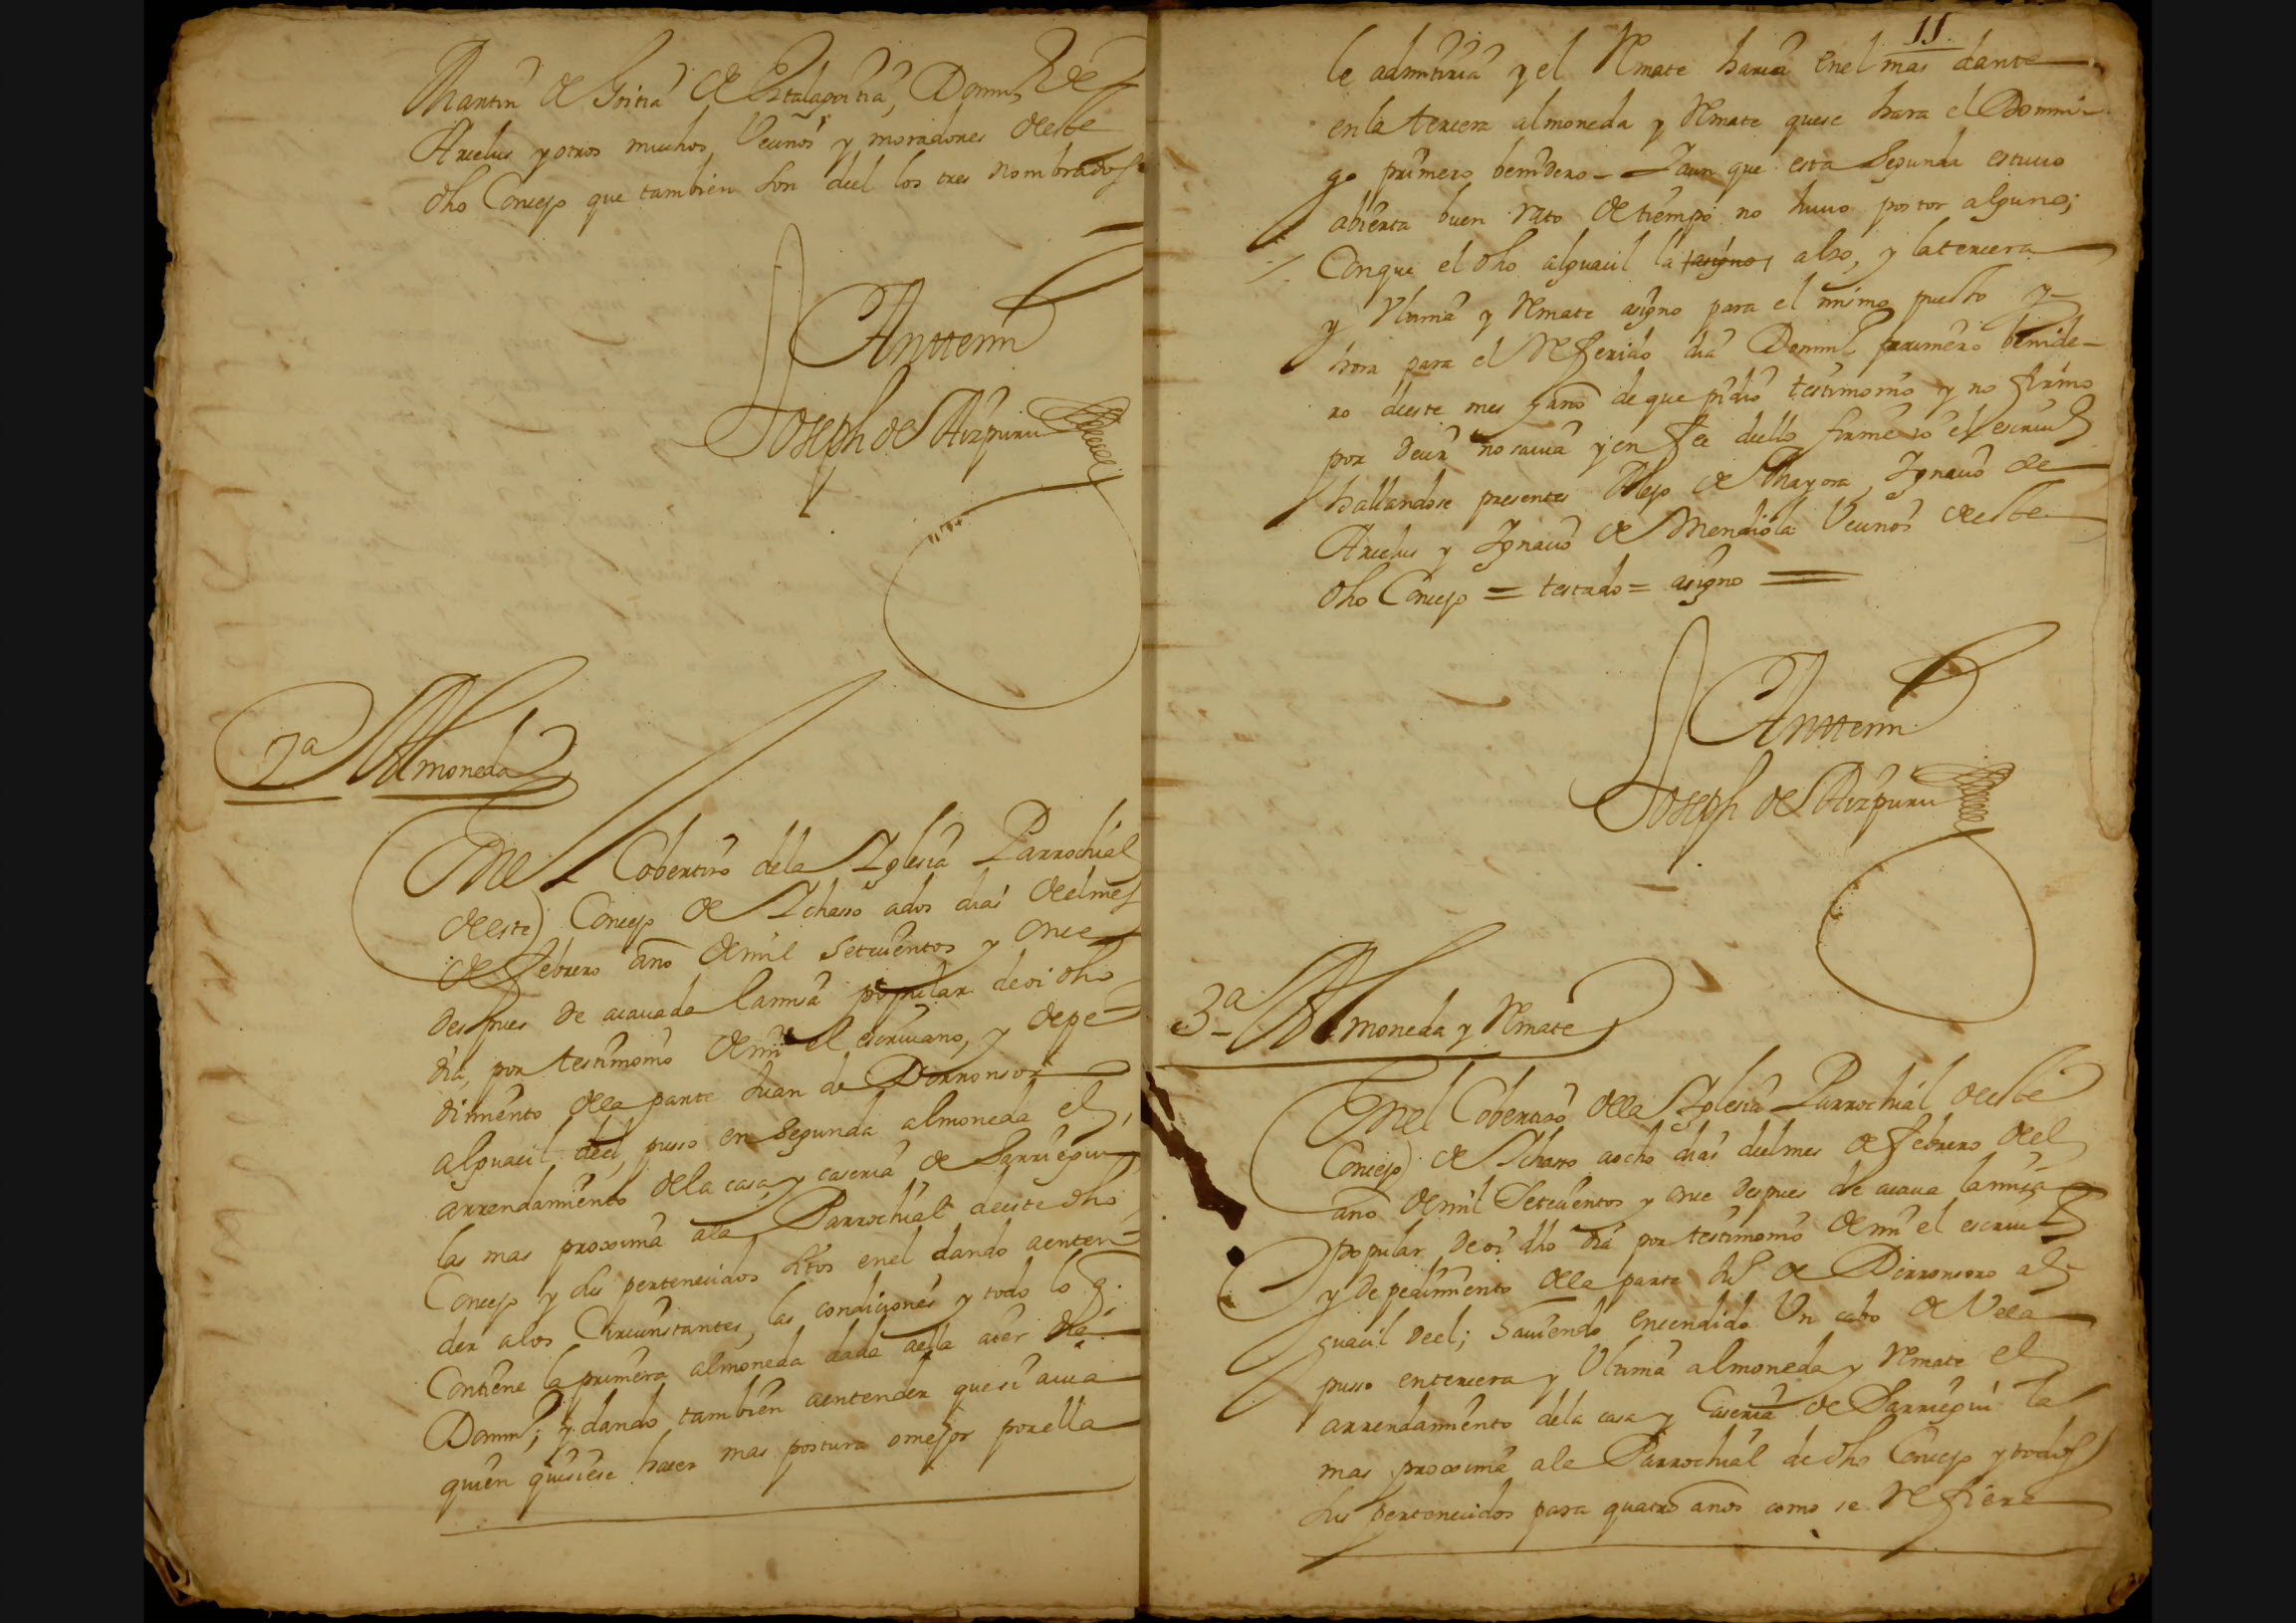 Martin de Goitia de Estalapoitia, Domin.º de
Arcelus y otros muchos Vecinos y moradores deeste
dho Concejo que tambien son deel los tres nombrados =
Anttemi
Joseph de Aizpuru
2ª Almoneda
En el Cobertizo dela Iglesia Parrochial
deeste Concejo de Ichasso ados dias deelmes
de febrero año demil setecientos y once
despues de acavada lamisa popular deoi dho
dia, por testimonio demi el escrivano, y depe=
dimento dela parte Juan de Dorronsoro
alguacil deel, pusso en segunda almoneda el
arrendamiento dela casa y caseria de Sarriegui
las mas proxima ala Parrochial deeste dho
Concejo y sus pertenecidos sitos enel dando aenten=
der alos Circunstantes, las condiciones y todo lo q.
Contiene la primera almoneda dada aella ater dia
Domin.º; y dando tambien aentender que si avia
quien quisiese hacer mas postura omejor porella
11
le admitiria y el Remate haria enel mas dante
en la tercera almoneda y Remate quese hara el Domin-
go primero benidero - Iaun que esta segunda estuvo
abierta buen rato detiempo no huvo postor alguno;
Conque el dho alguacil la asigno also, y latercera
y Ultima y Remate asigno para el mismo puesto y
hora para el Referido dia Domin.º primero benide-
ro deeste mes y año deque pidio testimonio y no firmo
por decir no savia y en fee deello firme io el escriv.º
hallandose presentes Alejo de Mayora, Ignacio de
Arcelus y Ignacio de Mendiola Vecinos deeste
dho Concejo = testado = asigno =
Anttemi
Joseph de Aizpuru
3ª Almoneda y Remate
En el Cobertizo dela Iglesia Parrochial deeste
Concejo de Ichasso aocho dias deelmes de febrero deel
año demil Setecientos y once despues de acava lamisa
popular deoi dho dia por testimonio demi el escriv.º
y de pedimento dela parte Ju.º de Dorronsoro al-
guacil deel; haviendo encendido Un cabo de Vela
pusso entercera y Ultima almoneda y Remate el
arrendamiento dela casa y Caseria de Sarriegui la
mas proxima ala Parrochial de dho Concejo y todos
sus pertenecidos para quatro años como se Refiere